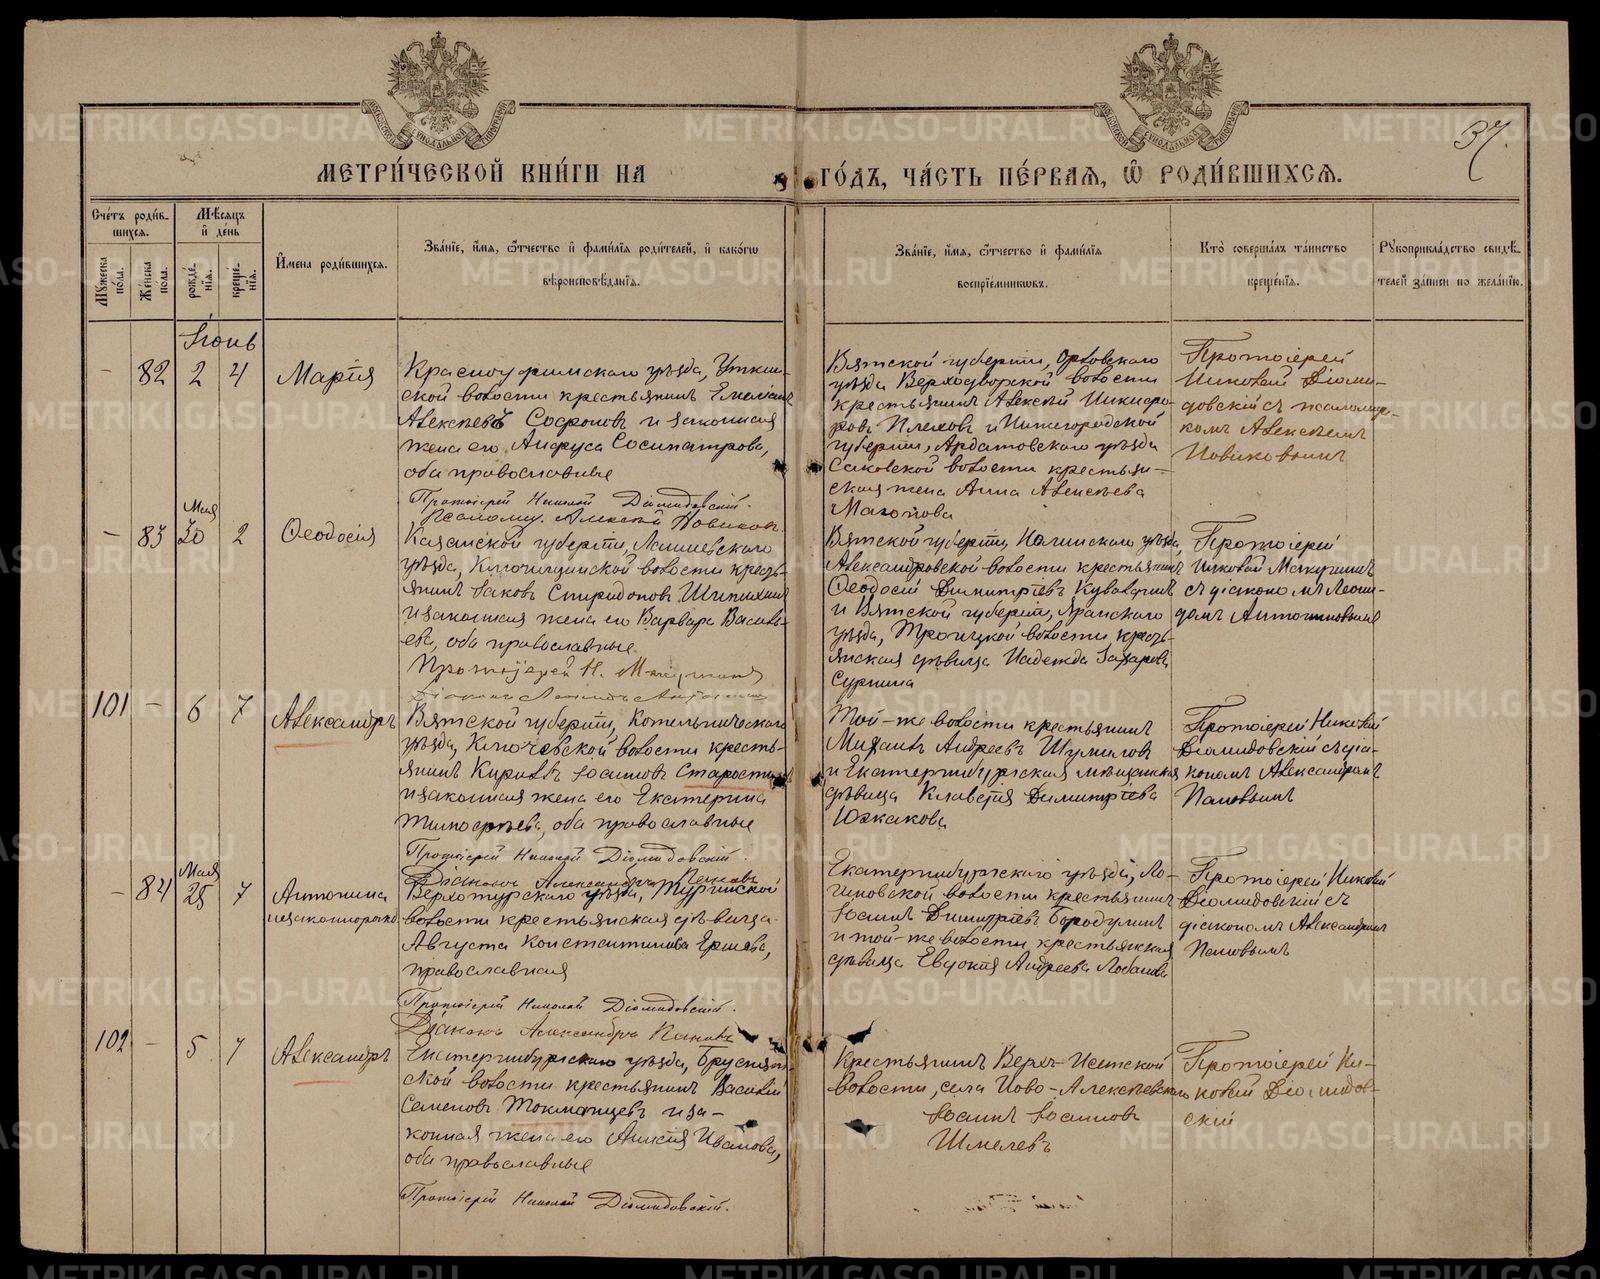 37.
МЕТРИ́ЧЕСКОЙ КНИ́ГИ НА ГО́ДЪ, ЧА́СТЬ ПЕ́РВАѦ, Ѡ҆ РОДИ́ВШИХСѦ.
Сче́тъ роди́в-
шихсѧ.
Мꙋ́жеска по́ла.
Же́нска по́ла.
Мѣ́сѧцъ
и҆ де́нь
рожде́нїѧ.
креще́нїѧ.
И҆́мена роди́вшихсѧ.
Зва́нїе, и҆́мѧ, ѻ҆́тчество и҆ фами́лїѧ роди́телей, и҆ како́гѡ
вѣроисповѣ́данїѧ.
Зва́нїе, и҆́мѧ, ѻ҆́тчество и҆ фами́лїѧ
воспрїе́мникѡвъ.
Кто̀ соверша́лъ та́инство
креще́нїѧ.
Рꙋкоприкла́дство свидѣ́-
телей за́писи по жела́нїю.
Іюнь
— 82 2 4 Марія
Красноуфимскаго уѣзда, Уткин-
ской волости крестьянинъ
Алексѣевъ Софроновъ и законная
жена его, Анфуса Сосипатрова,
оба православные
Протоіерей Николай Діомидовскій.
Псаломщ. Алексѣй Новиковъ.
Вятской губерніи, Орловскаго
уѣзда Верходворской волости
крестьянинъ Алексѣй Никифо-
ровъ Плеховъ и Нижегородской
губерніи, Ардатовскаго уѣзда
Саковской волости крестьян-
ская жена Анна Алексѣева
Протоіерей
Николай Діоми-
довскій съ псаломщи-
комъ Алексѣемъ
Новиковымъ
— 83 Мая 30 2 Ѳеодосія
Казанской губерніи, Лаишевскаго
уѣзда, Ключищинской волости кресть-
янинъ Іаковъ Спиридоновъ Шипихинъ
и законная жена его Варвара Василь-
ева, оба православные
Протоіерей Н.
Діаконъ Леонидъ
Вятской губерніи, Нолинскаго уѣзда,
Александровской волости крестьянинъ
Ѳеодосій Димитріевъ
и Вятской губерніи, Яранскаго
уѣзда, Троицкой волости кресть-
янская дѣвица Надежда Захарова
Сурнина
Протоіерей
Николай
съ діакономъ Леони-
домъ
101 — 6 7 Александръ
Вятской губерніи, Котельническаго
уѣзда, Ключевской волости кресть-
янинъ Кириллъ Іосифовъ Старостинъ
и законная жена его Екатерина
Тимоѳеева, оба православные
Протоіерей Николай Діомидовскій.
Діаконъ Александръ Поповъ
Той-же волости крестьянинъ
Михаилъ Андреевъ Шумиловъ
и Екатеринбургская мѣщанская
дѣвица Клавдія Димитріева
Южакова
Протоіерей Николай
Діомидовскій съ діа-
кономъ Александромъ
Поповымъ
— 84 Мая 25 7 Антонина
незаконнорожд.
Верхотурскаго уѣзда, Туринской
волости крестьянская дѣвица
Августа Константинова Ершева,
православная
Протоіерей Николай Діомидовскій.
Діаконъ Александръ Поповъ
Екатеринбургскаго уѣзда, Ло-
гиновской волости крестьянинъ
Іоаннъ Димитріевъ Бородулинъ
и той-же волости крестьянская
дѣвица Евдокія Андреева Лобанова
Протоіерей Николай
Діомидовскій съ
діакономъ Александромъ
Поповымъ
102 — 5 7 Александръ
Екатеринбургскаго уѣзда, Бруснян-
ской волости крестьянинъ Василій
Семеновъ Токманцевъ и за-
конная жена его Анисія Иванова,
оба православные
Протоіерей Николай Діомидовскій.
Крестьянинъ Верх-Исетской
волости, села Ново-Алексѣевскаго
Іоаннъ Іоанновъ
Шмелевъ
Протоіерей Ни-
колай Діомидов-
скій
METRIKI.GASO-URAL.RU